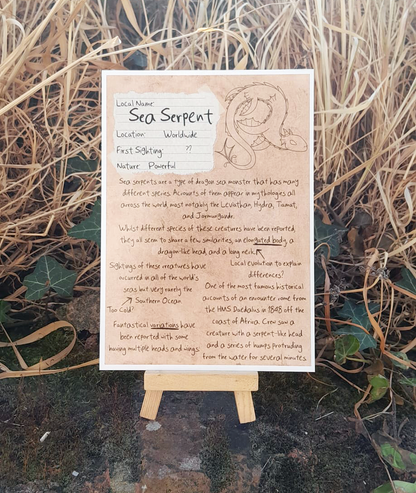 Local Name:
Sea Serpent
Location: Worldwide
First Sighting: ??
Nature: Powerful
Sea serpents are a type of dragon sea monster that has many
different species. Accounts of them appear in mythologies all
across the world, most notably the Leviathan, Hydra, Tiamat,
and Jormungandr.
Whilst different species of these creatures have been reported
they all seem to share a few similarities, an elongated body, a
dragon-like head, and a long neck.
Local evolution to explain
differences?
Sightings of these creatures have
occurred in all of the world's
seas but very rarely the
Southern Ocean.
Too Cold?
Fantastical variations have
been reported with some
having multiple heads and wings.
One of the most famous historical
accounts of an encounter come from
the HMS Daedalus in 1848 off the
coast of Africa. Crew saw a
creature with a serpent-like head
and a series of humps protruding
from the water for several minutes.